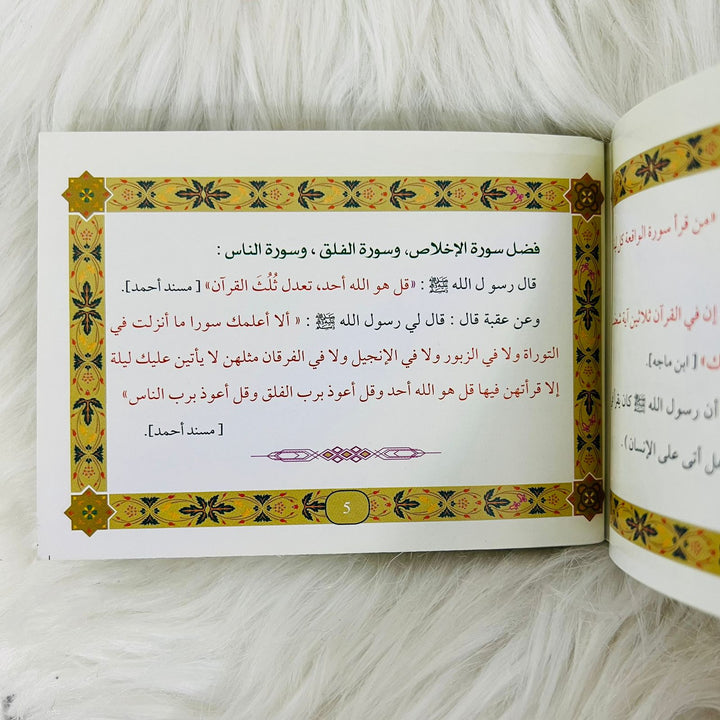 فضل سورة الإخلاص، وسورة الفلق ، وسورة الناس :
قال رسو ل الله ﷺ : «قل هو الله أحد، تعدل ثُلُثَ القرآن» [ مسند أحمد].
وعن عقبة قال : قال لي رسول الله ﷺ : « ألا أعلمك سورا ما أنزلت في
التوراة ولا في الزبور ولا في الإنجيل ولا في الفرقان مثلهن لا يأتين عليك ليلة
إلا قرأتهن فيها قل هو الله أحد وقل أعوذ برب الفلق وقل أعوذ برب الناس»
[ مسند أحمد].
5
«من قرأ سورة الواقعة كل
إن في القرآن ثلاثين آية
[ ابن ماجه].
أن رسول الله ﷺ كان
أتى على الإنسان ).